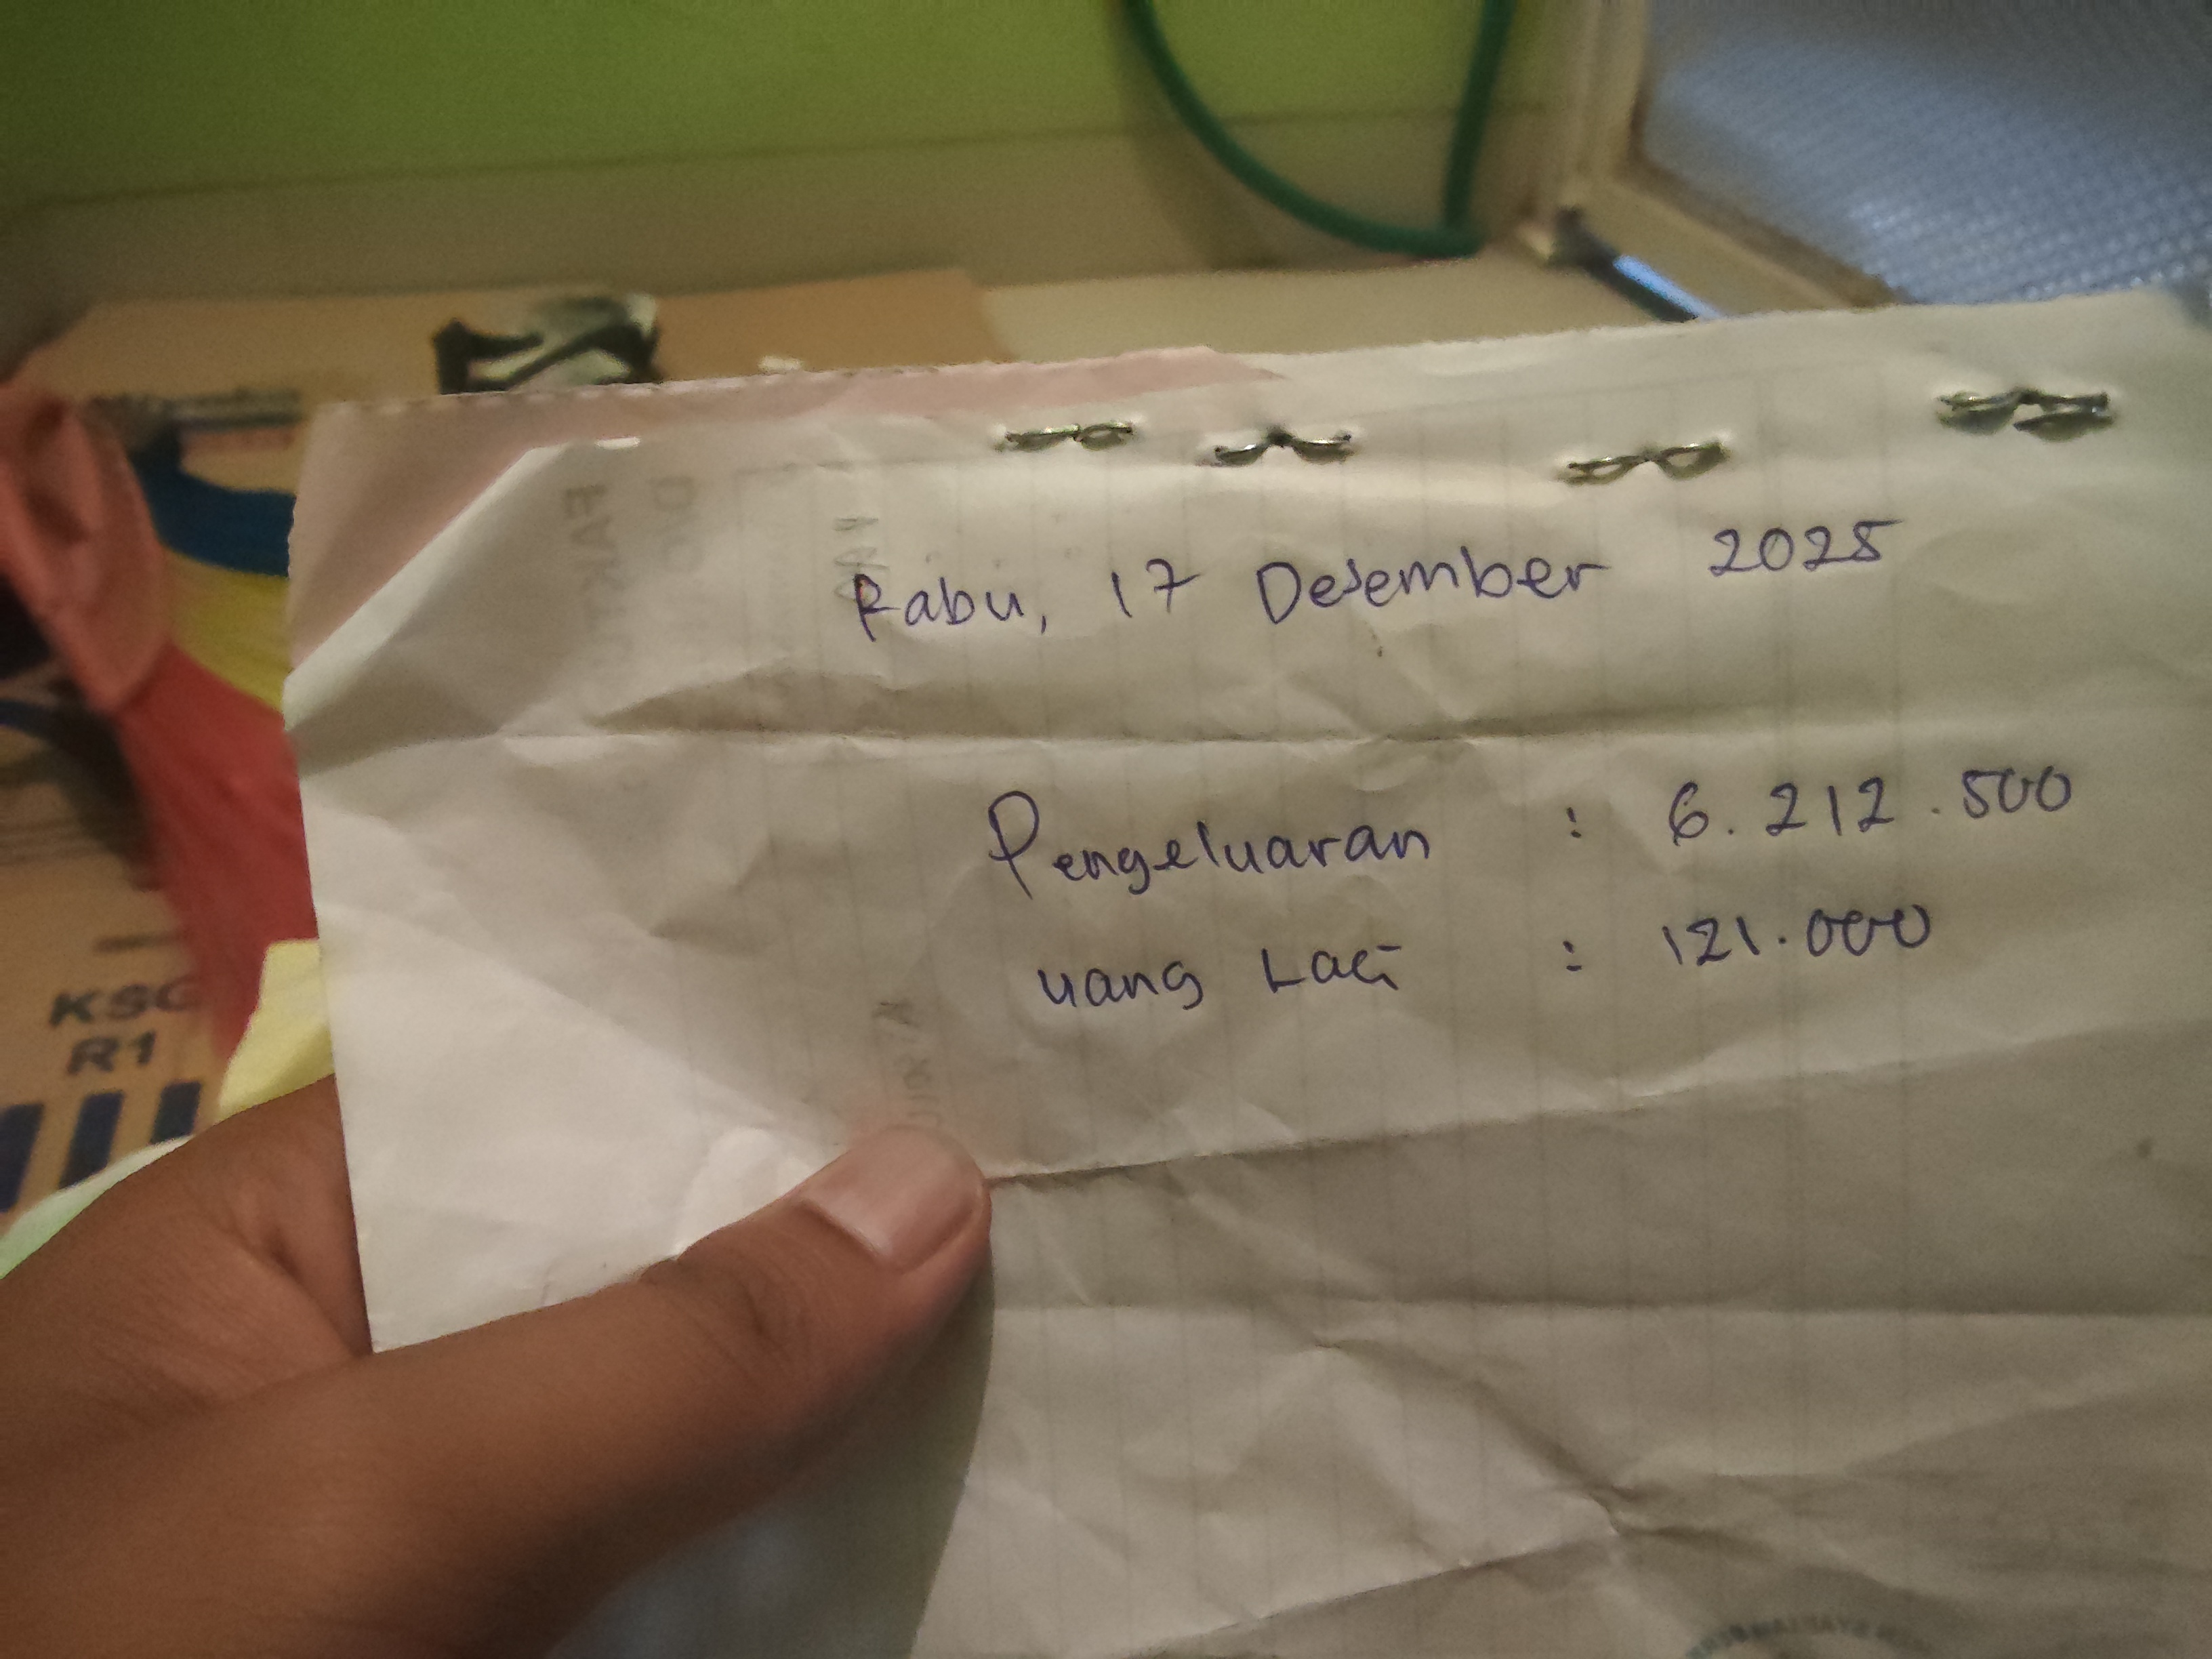 Rabu, 17 Desember 2025
Pengeluaran : 6.212.500
uang Laci : 121.000
KSC
R1